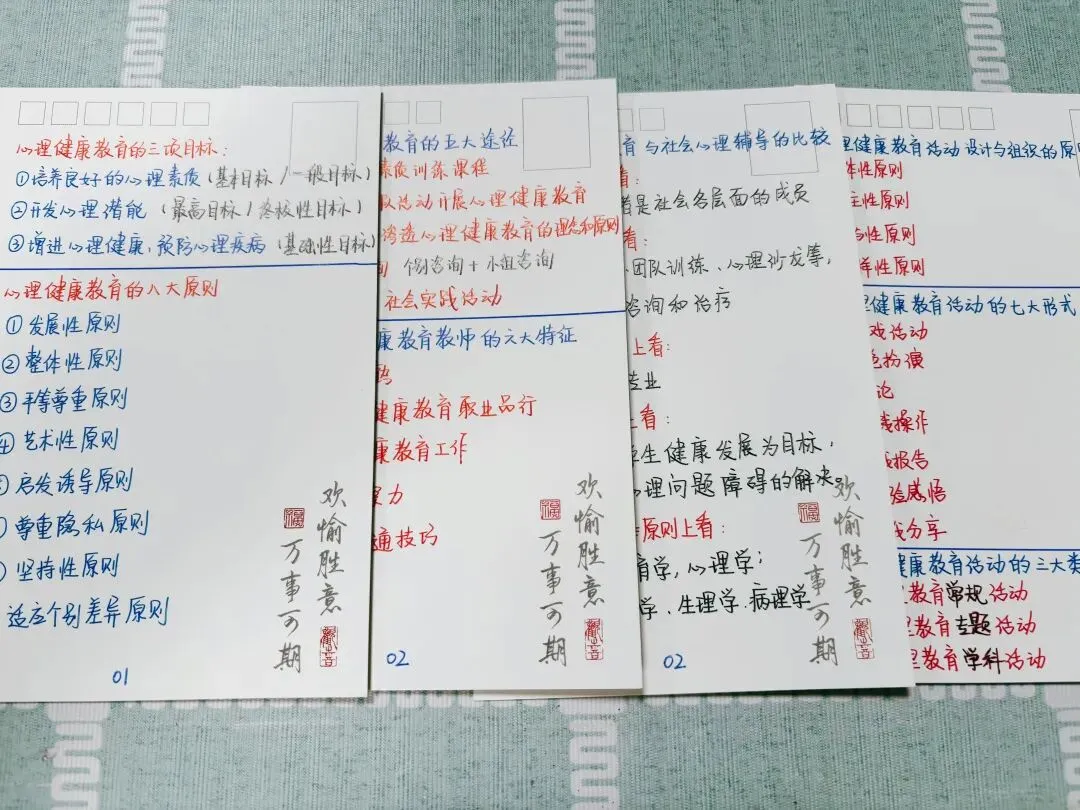 心理健康教育的三项目标：
①培养良好的心理素质（基本目标/一般目标）
②开发心理潜能（最高目标/终极性目标）
③增进心理健康，预防心理疾病（基础性目标）
心理健康教育的八大原则
①发展性原则
②整体性原则
③平等尊重原则
④艺术性原则
启发诱导原则
尊重隐私原则
坚持性原则
适应个别差异原则
欢愉胜意
万事可期
01
教育的五大途径
素质训练课程
活动开展心理健康教育
营造心理健康教育的理念和原则
个别咨询+小组咨询
社会实践活动
康教育教师的六大特征
健康教育职业品行
康教育工作
力
通技巧
欢愉胜意
万事可期
02
育与社会心理辅导的比较
看：
者是社会各层面的成员
看：
团队训练、心理沙龙等，
咨询和治疗
上看：
专业
上看：
学生健康发展为目标，
心理问题障碍的解决。
原则上看：
育学，心理学；
学、生理学、病理学
欢愉胜意
万事可期
02
理健康教育活动设计与组织的原则
体性原则
性原则
性原则
样性原则
理健康教育活动的七大形式
戏活动
色扮演
论
操作
报告
验感悟
我分享
健康教育活动的三大类
教育常规活动
理教育专题活动
理教育学科活动